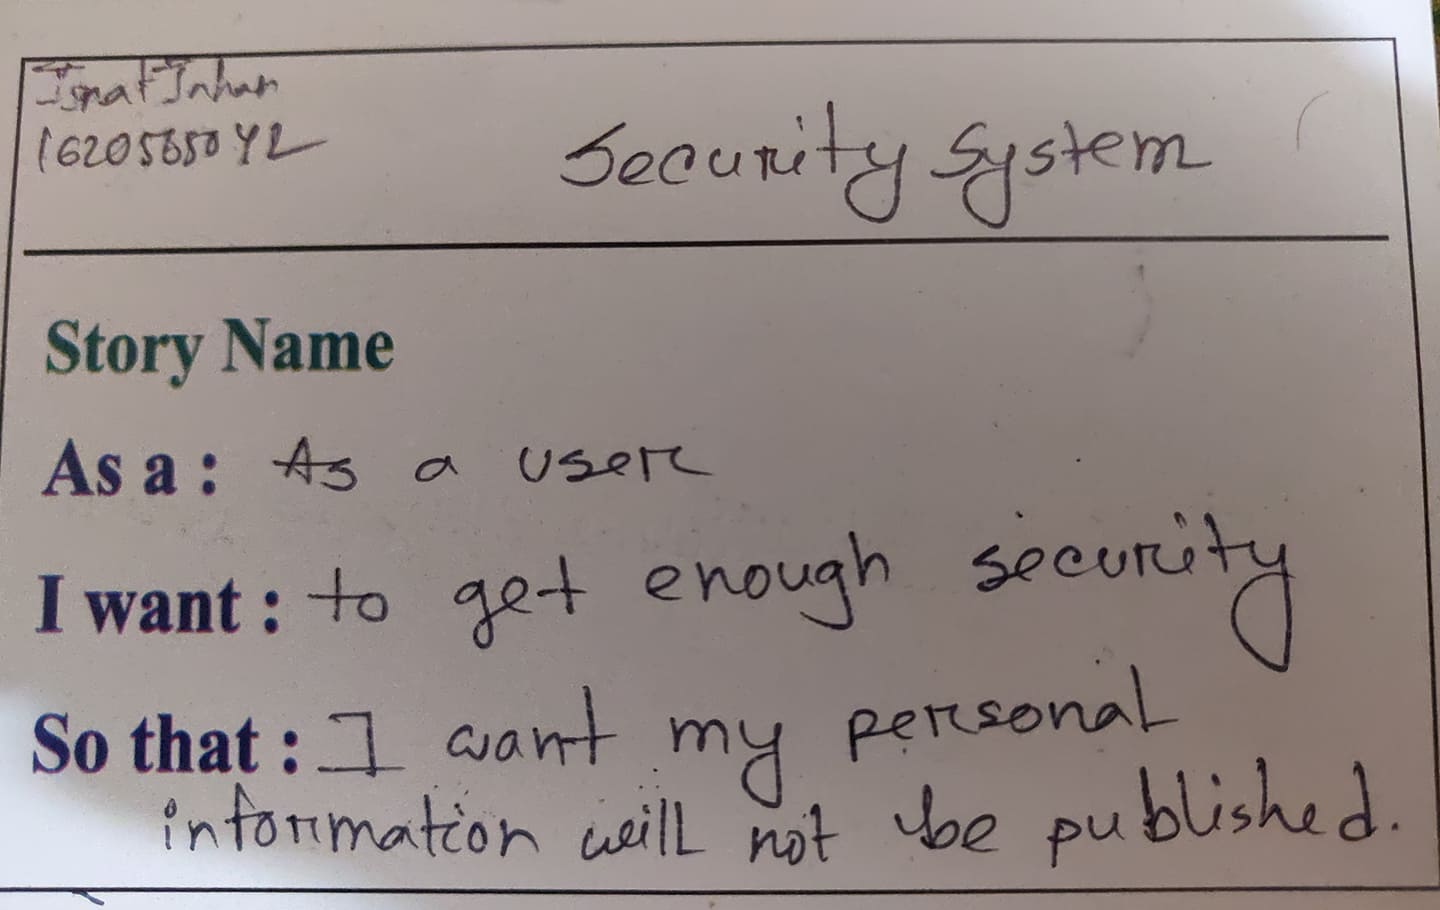 Ismat Jahan
Security System
Story Name
As a : As a user
I want : to get enough security
So that : I want my personal
information will not be published.